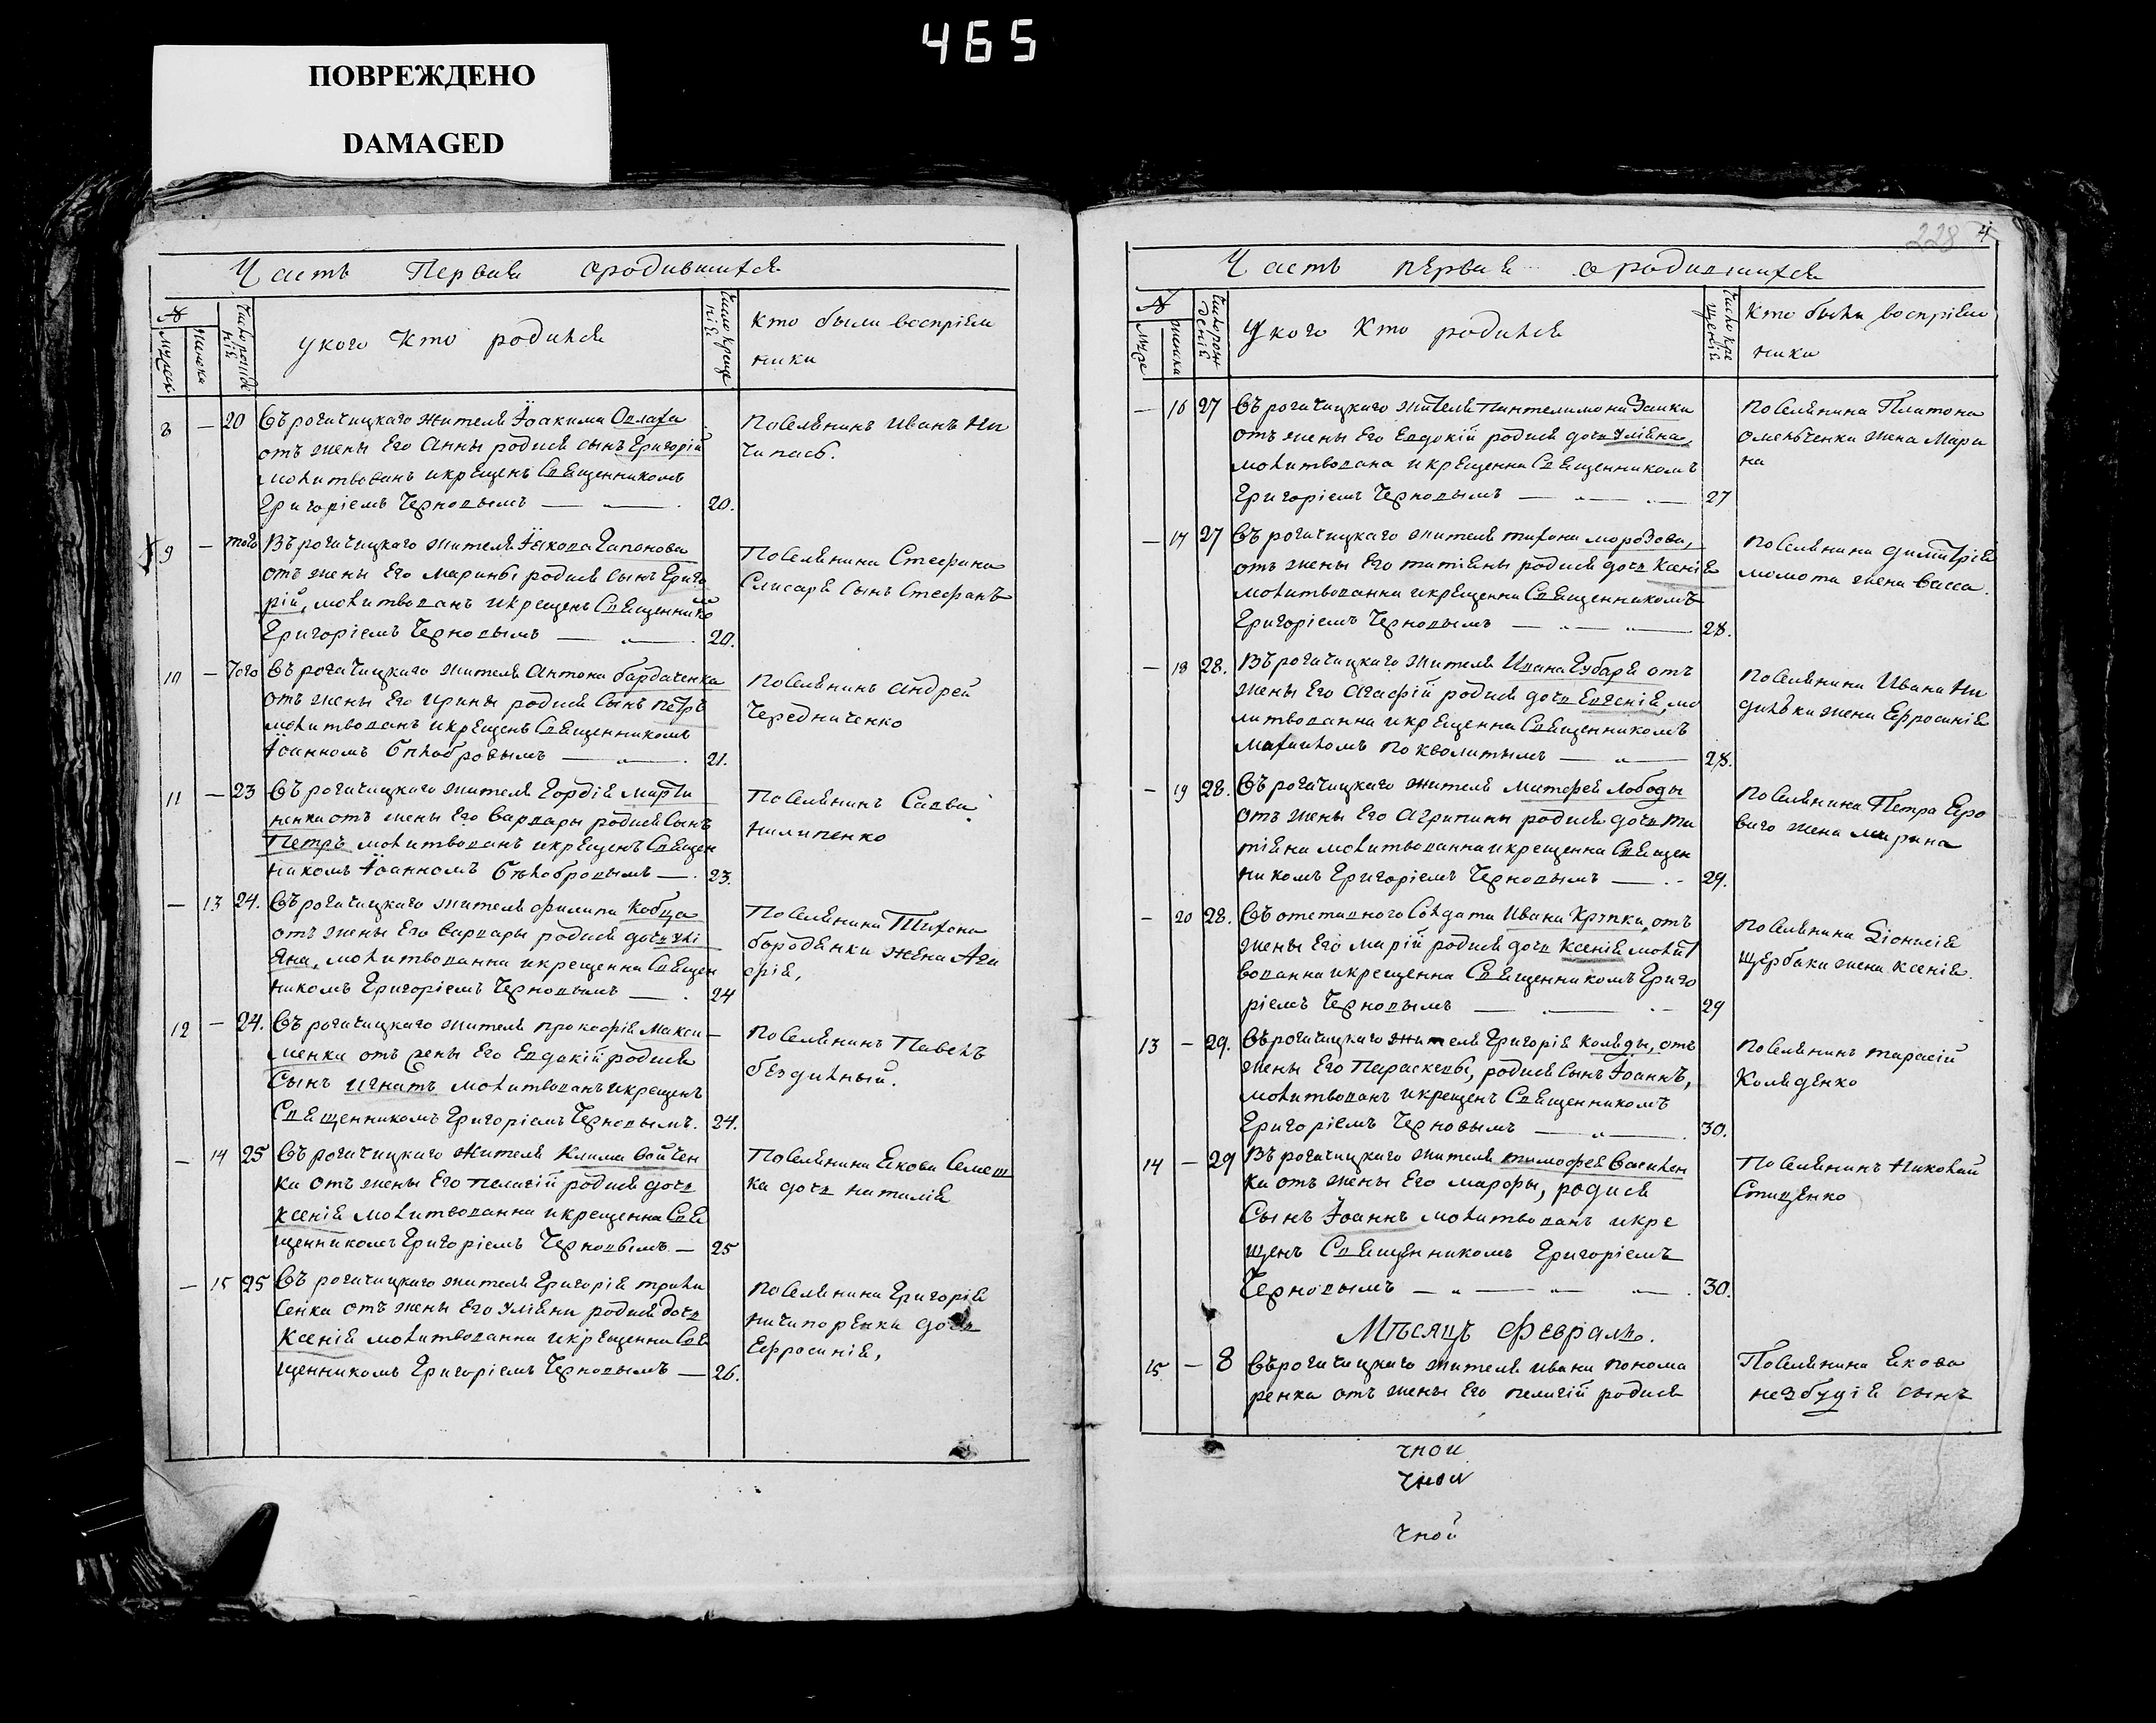 465
ПОВРЕЖДЕНО
DAMAGED
Часть Первая ородившихся
№
Мужск:
Женска
Число рожде
ній
укого Кто родился
Число креще
нія
Кто были воспріем
ники
8 — 20 Въ рогачицкаго жителя Іоакима
отъ жены Его Анны родися сынъ Григорій
молитвованъ икрещенъ Священникомъ
Григоріемъ Черновымъ — 20.
Поселянинъ Иванъ Ни
чипасъ.
9 — того Въ рогачицкаго жителя Іакова Гапонова
отъ жены Его Марины родися сынъ Григо
рій, молитвованъ икрещенъ Священнико
Григоріемъ Черновымъ — 20.
Поселянина Стефана
Слисаря Сынъ Стефанъ
10 — Того Въ рогачицкаго жителя Антона бардаченка
отъ жены Его Ирины родися Сынъ Петръ
молитвованъ икрещенъ Священникомъ
Іоанномъ Бѣлобровымъ — 21.
Поселянинъ Андрей
Чередниченко
11 — 23 Въ рогачицкаго жителя Гордія Марти
ненка отъ жены Его Варвары родися Сынъ
Петръ молитвованъ икрещенъ Священ
никомъ Іоанномъ Бѣлобровымъ — 23.
Поселянинъ Савва
Пилипенко
— 13 24. Въ рогачицкаго жителя Филипа Кобца
отъ жены Его Варвары родися дочь Улі
яна, молитвованна икрещенна Священ
никомъ Григоріемъ Черновымъ — 24
Поселянина Тихона
бородавки жена Ага
фія,
12 — 24. Въ рогачицкаго жителя Прокофія Макси
менка отъ жены Его Евдокій родися
Сынъ Игнатъ молитвованъ икрещенъ
Священникомъ Григоріемъ Черновымъ. 24.
Поселянинъ Павелъ
бездилный.
— 14 25 Въ рогачицкаго жителя Клима Войчен
ка отъ жены Его Пелагій родися дочь
Ксенія молитвованна икрещенна Свя
щенникомъ Григоріемъ Черновымъ — 25
Поселянина Якова Семеш
ка дочь Наталія
— 15 25 Въ рогачицкаго жителя Григорія
сенка отъ жены Его Уліяни родися дочь
Ксенія молитвованна икрещенна Свя
щенникомъ Григоріемъ Черновымъ — 26.
Поселянина Григорія
Ничипоренка дочь
Ефросинія,
228 4
Часть первая ородившихся
№
Муже
Женска
Число рож
денія
Укого Кто родился
Число кре
щенія
Кто были воспріем
ники
— 16 27 Въ рогачицкаго жителя Пантелимона Заики
отъ жены Его Евдокій родися дочь Уліяна,
молитвована икрещенна Священникомъ
Григоріемъ Черновымъ — 27
Поселянина Платона
Омельченка жена Мари
на
— 17 27 Въ рогачицкаго жителя Тихона Морозова,
отъ жены Его Татіяны родися дочь Ксенія
молитвованна икрещенна Священникомъ
Григоріемъ Черновымъ — 28.
Поселянина Димитрія
Момота жена Васса.
— 18 28. Въ рогачицкаго жителя Ивана Губаря отъ
жены Его Агафій родися дочь Евгенія, мо
литвованна икрещенна Священникомъ
Михаиломъ Поквалитымъ — 28.
Поселянина Ивана Ни
жена Ефросинія
— 19 28. Въ рогачицкаго жителя Матофея Лободы
отъ жены Его Агрипины родися дочь Та
тіяна молитвованна икрещенна Священ
никомъ Григоріемъ Черновымъ — 29.
Поселянина Петра Еро
ваго жена Марина
— 20 28. Въ отставного Солдата Ивана Крупки, отъ
жены Его Марій родися дочь Ксенія молит
вованна икрещенна Священникомъ Григо
ріемъ Черновымъ — 29
Поселянина Діонисія
Щербаки жена Ксенія.
13 — 29. Въ рогачицкаго жителя Григорія Коляды, отъ
жены Его Параскевы, родися Сынъ Іоаннъ,
молитвованъ икрещенъ Священникомъ
Григоріемъ Черновымъ — 30.
Поселянинъ Тарасій
Коляденко
14 — 29 Въ рогачицкаго жителя Тимофея Василен
ка отъ жены Его Марфы, родися
Сынъ Іоаннъ молитвованъ икре
щенъ Священникомъ Григоріемъ
Черновымъ — 30.
Поселянинъ Николай
Стиценко
Мѣсяцъ Февраль.
15 — 8 Въ рогачицкаго жителя Ивана Понома
ренка отъ жены Его Пелагій родися
Поселянина Якова
Незбудія сынъ
чной
чной
чной